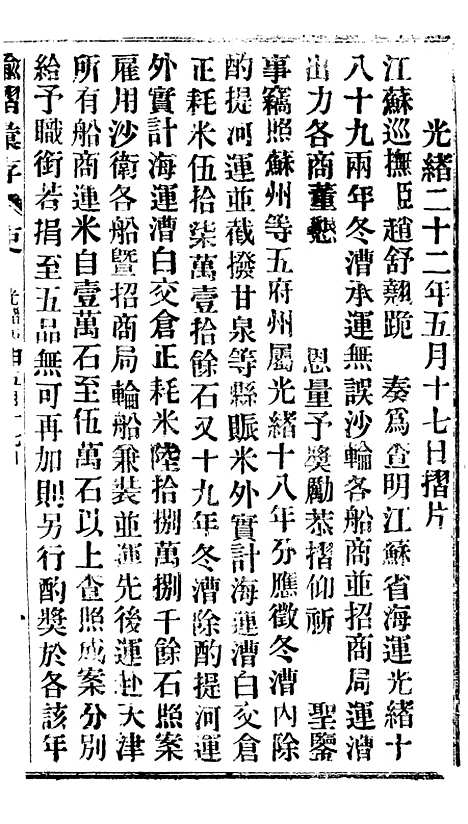 光緒二十二年五月十七日摺片
江蘇巡撫臣趙舒翹跪　奏為查明江蘇省海運光緒十
八十九兩年冬漕承運無誤沙輪各船商並招商局運漕
出力各商董懇　恩量予獎勵恭摺仰祈　聖鑒
事竊照蘇州等五府州屬光緒十八年分應徵冬漕內除
酌提河運並截撥甘泉等縣賑米外實計海運漕白交倉
正耗米伍拾柒萬壹拾餘石又十九年冬漕除酌提河運
外實計海運漕白交倉正耗米陸拾捌萬捌千餘石照案
雇用沙衛各船暨招商局輪船兼裝並運先後運赴天津
所有船商運米自壹萬石至伍萬石以上查照成案分別
給予職銜若捐至五品無可再加則另行酌獎於各該年
諭摺彙存